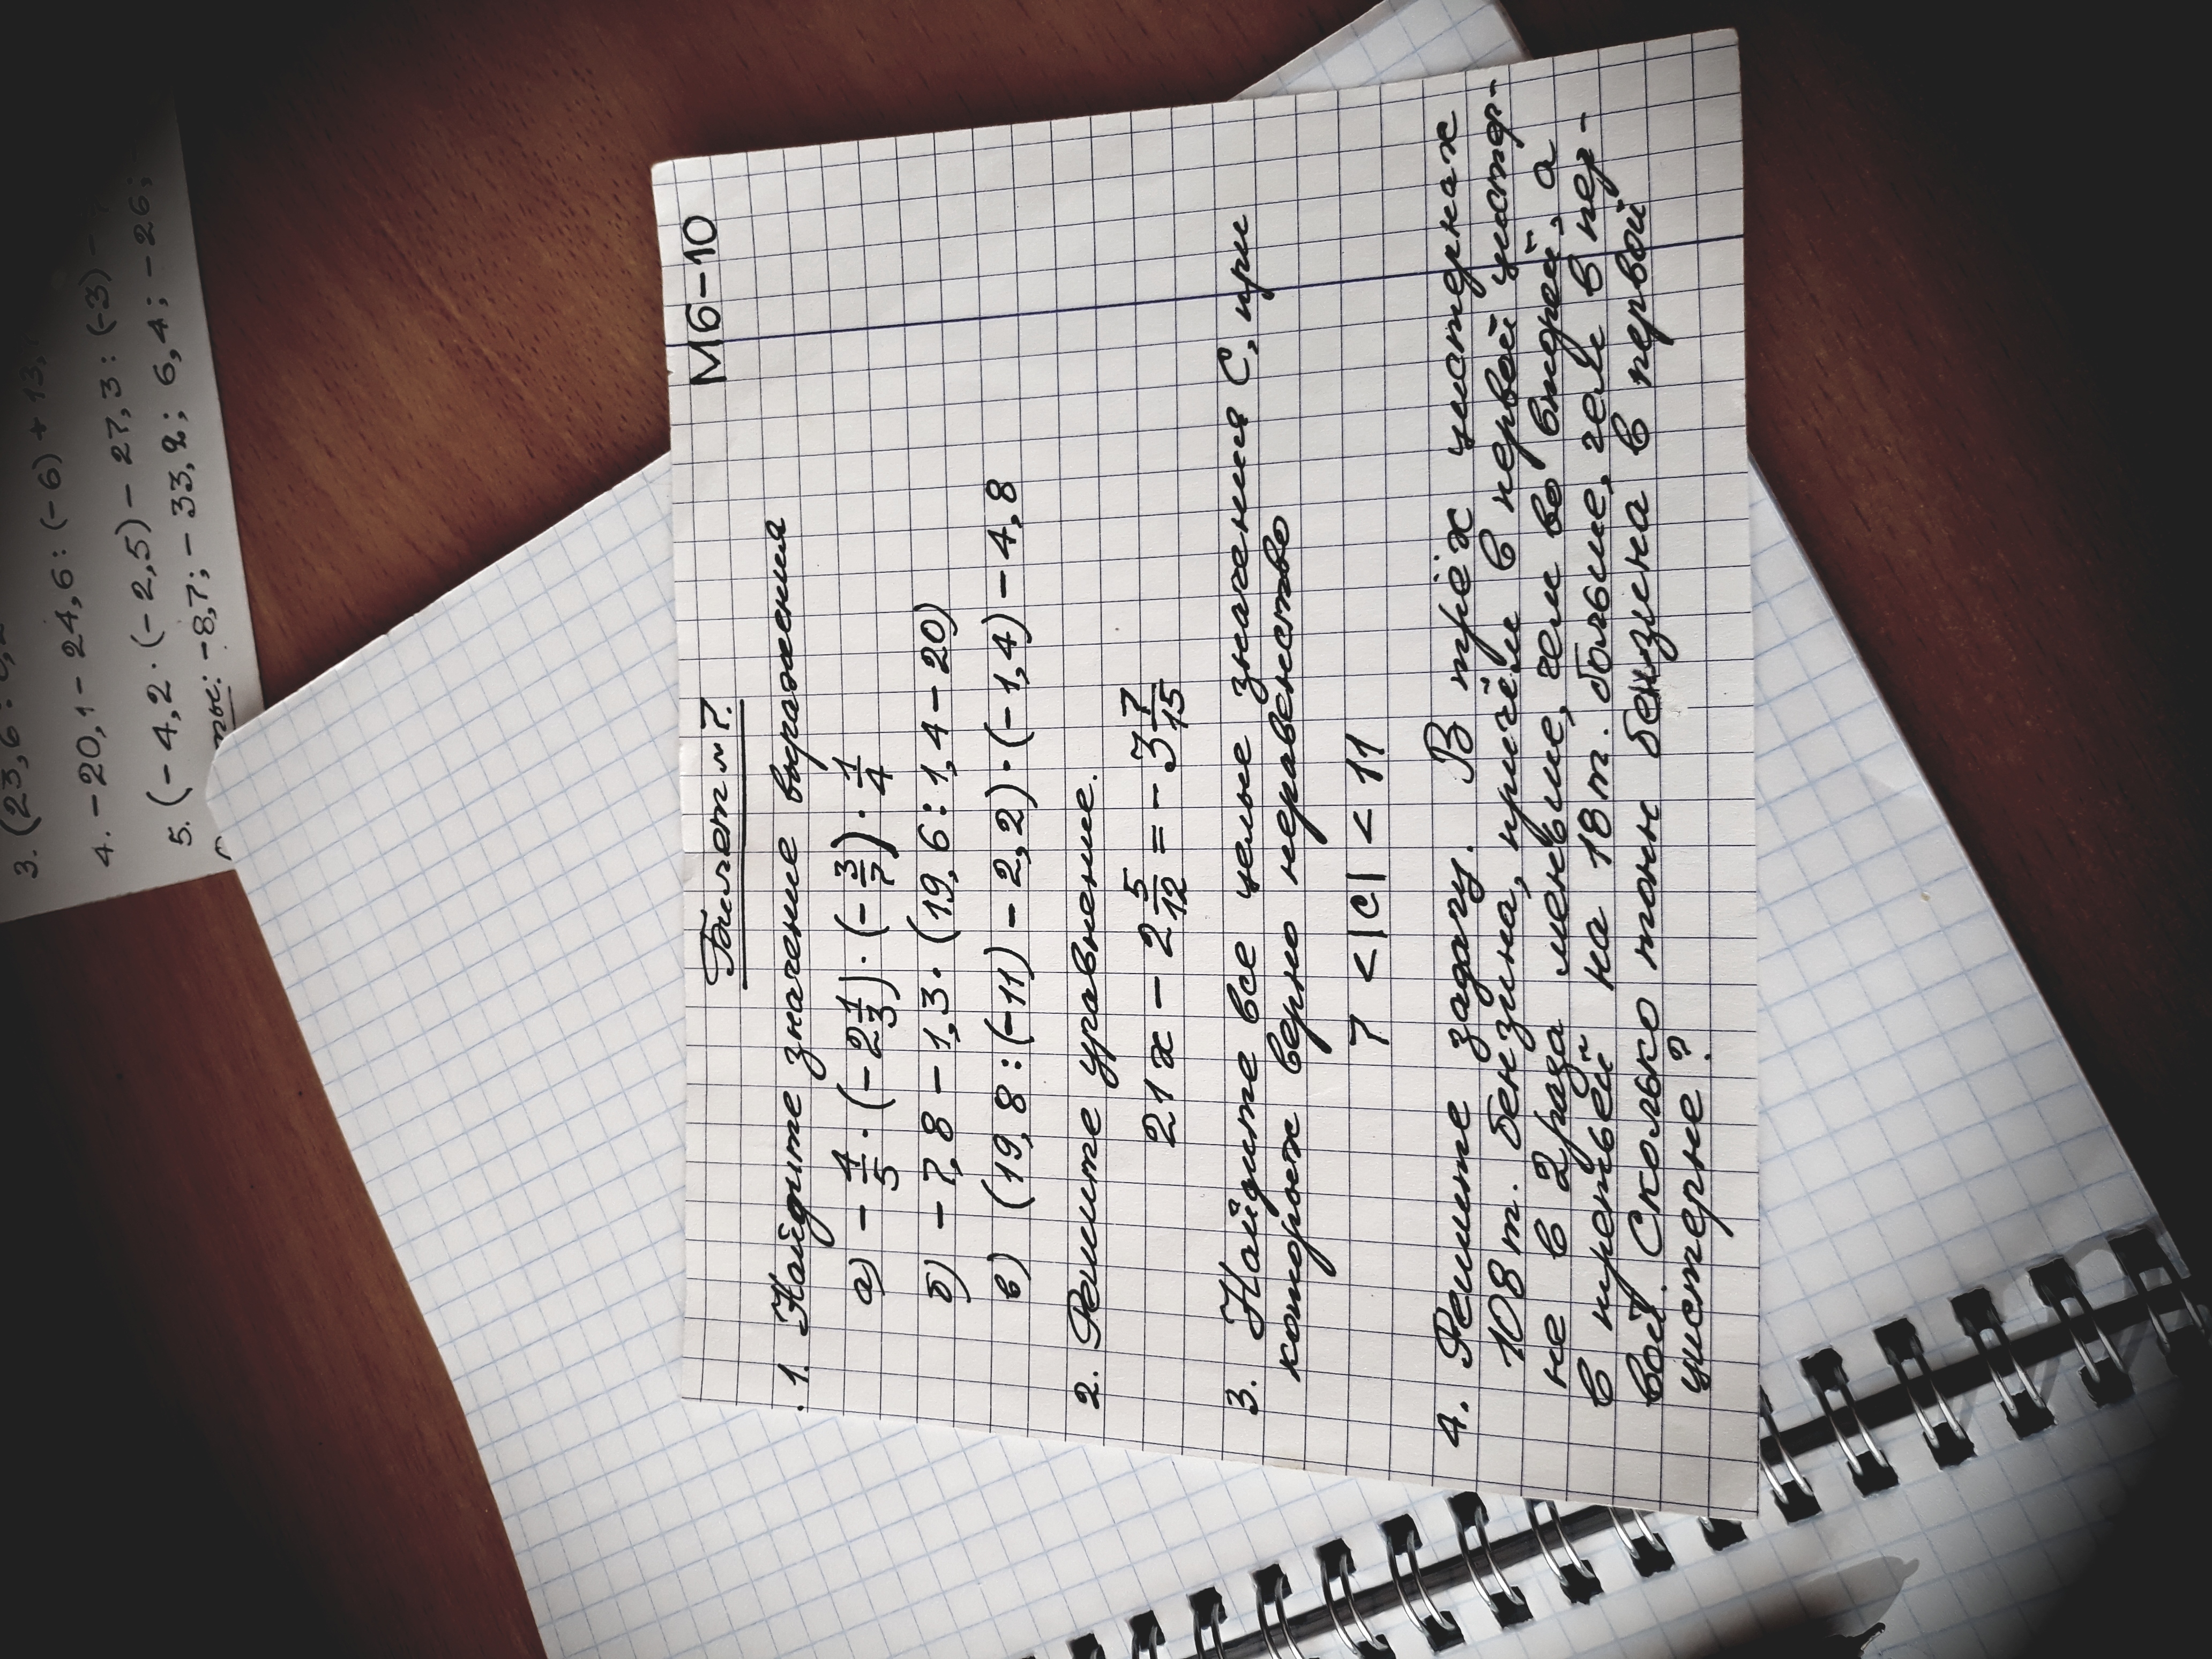 3. (23,6
4. -20,1 - 24,6 : (-6) + 13,
5. (-4,2 · (-2,5) - 27,3 : (-3) -
-8,7; -33,2; 6,4; -26;
М6-10
Билет №7.
1. Найдите значение выражения
а) - 4/5 · (-2 1/3) · (- 3/7) · 1/4
б) -7,8 - 1,3 · (19,6 : 1,4 - 20)
в) (19,8 : (-11) - 2,2) · (-1,4) - 4,8
2. Решите уравнение.
21x - 2 5/12 = -3 7/15
3. Найдите все целые значения С, при
которых верно неравенство
7 < |c| < 11
4. Решите задачу. В трёх цистернах
108 т. бензина, причём в первой цистер-
не в 2 раза меньше, чем во второй, а
в третьей на 18 т. больше, чем в пер-
вой. Сколько тонн бензина в первой
цистерне?